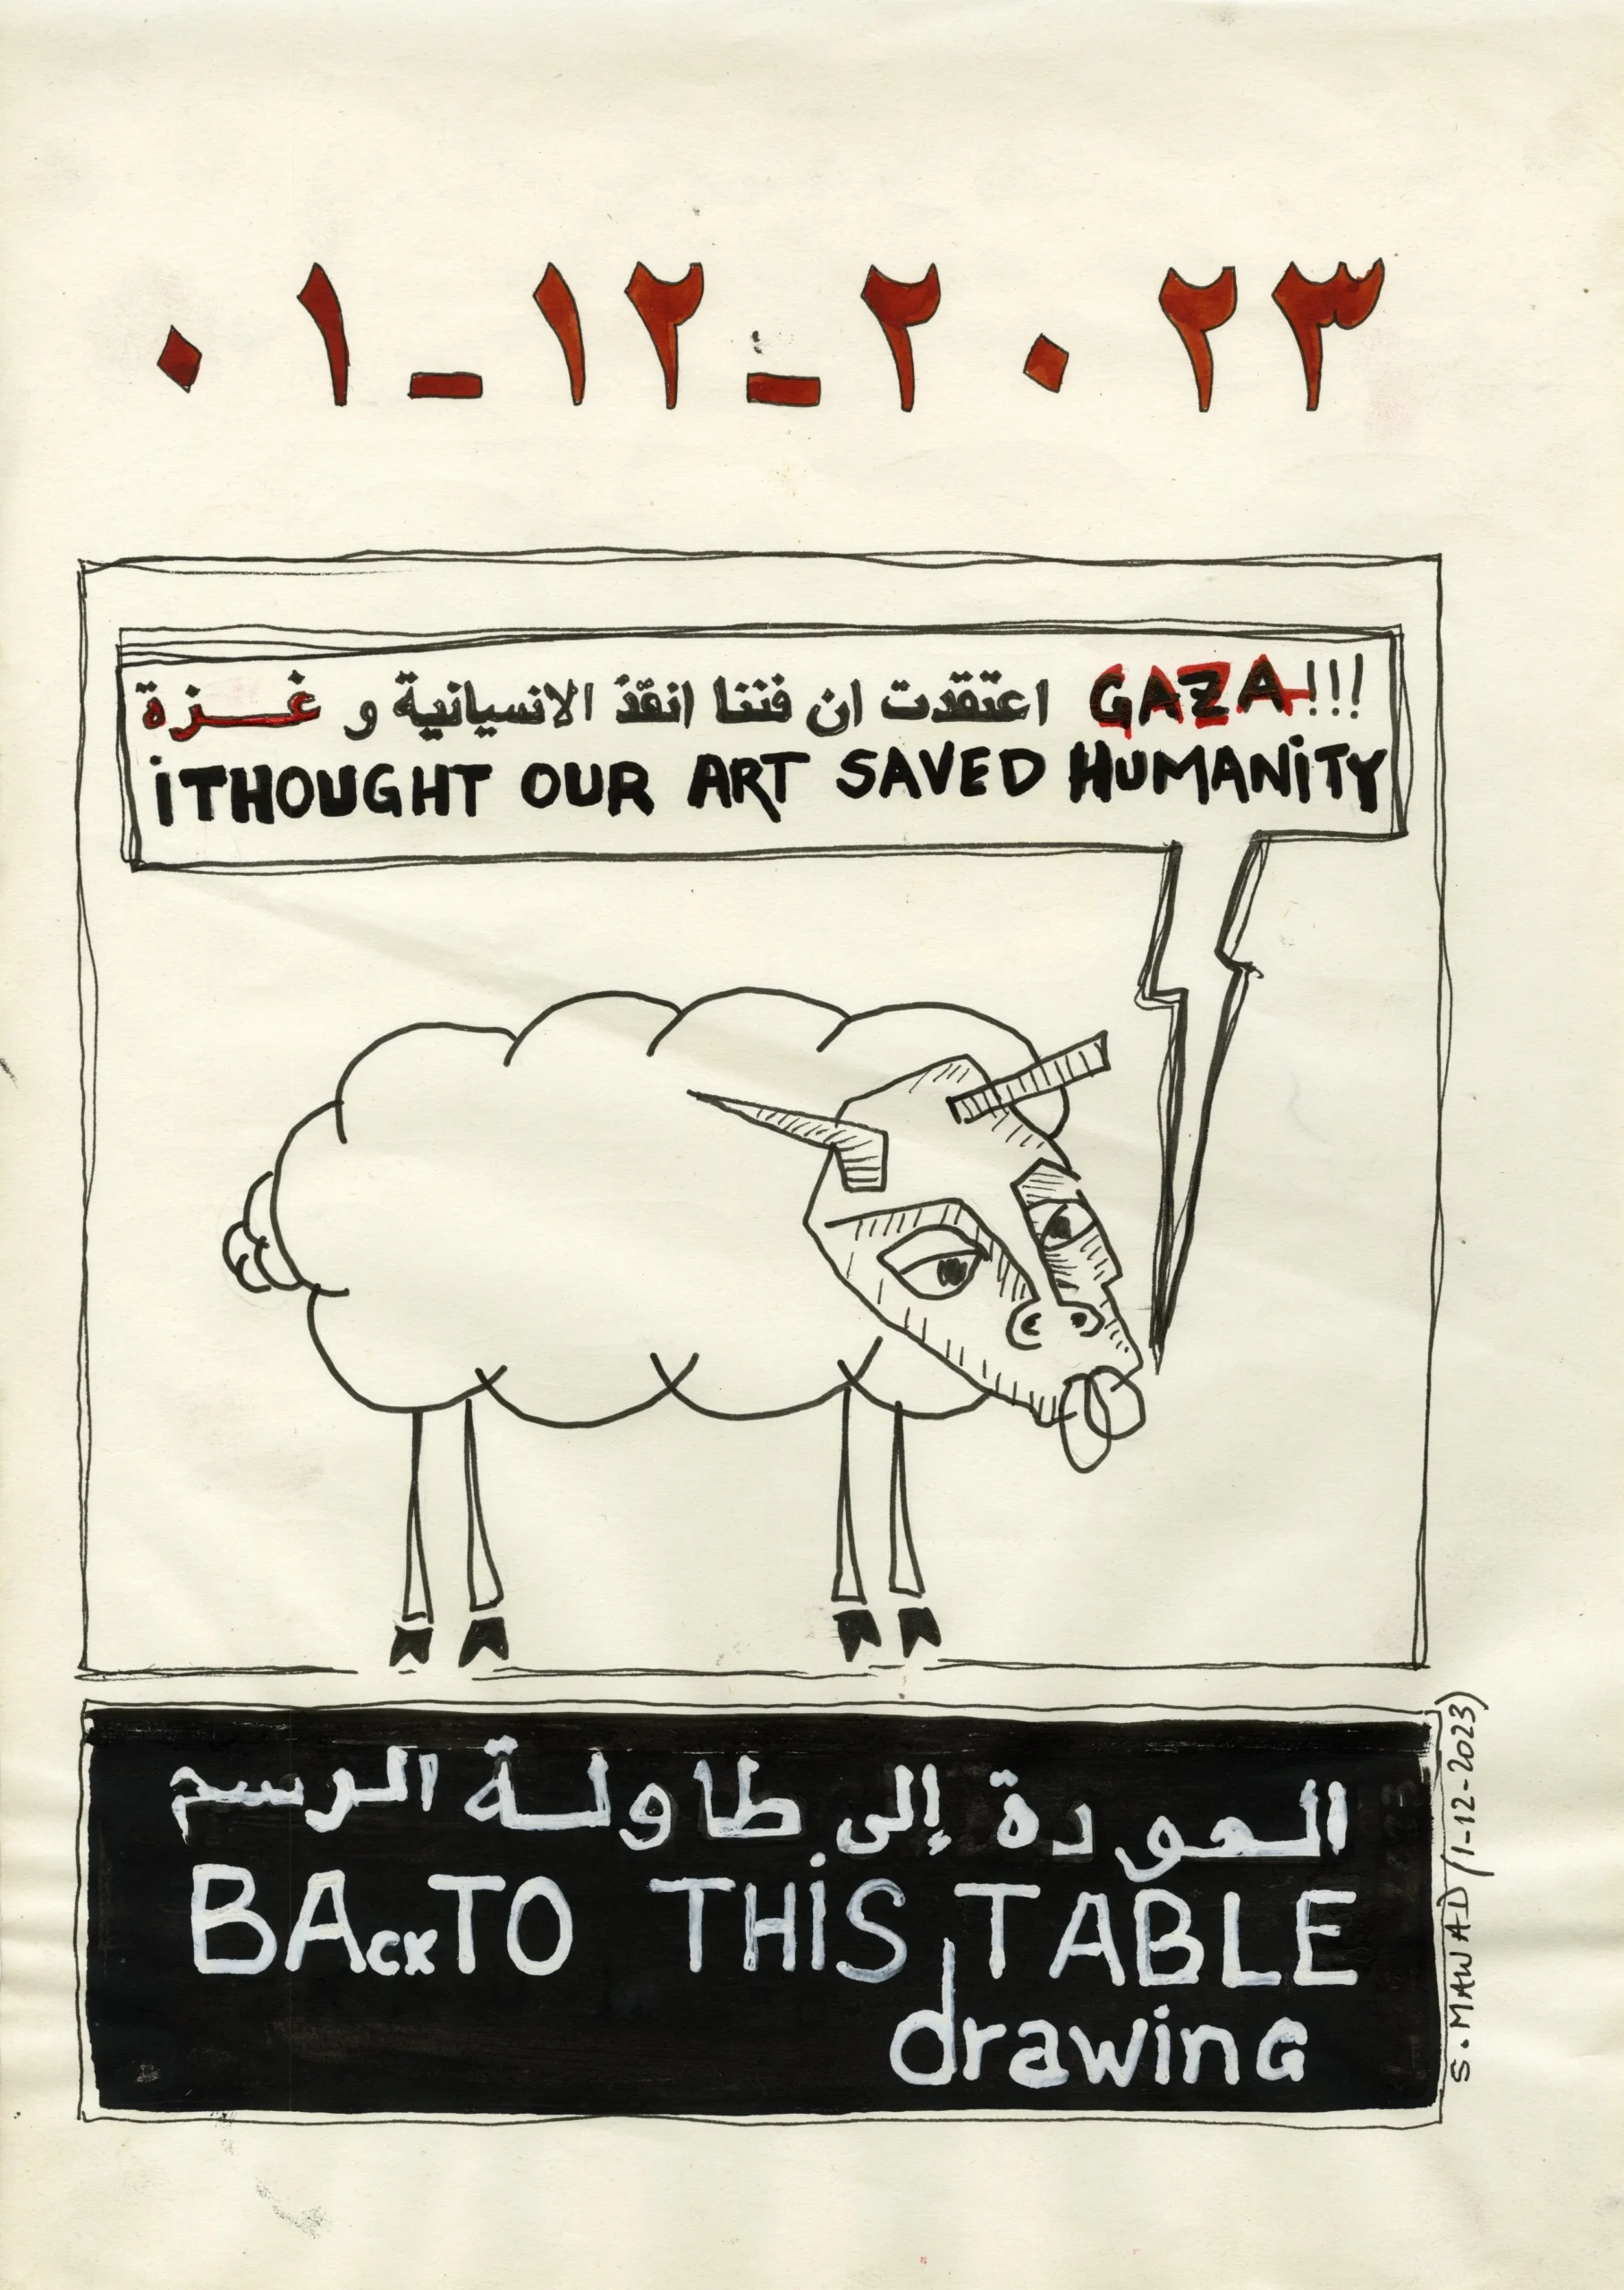 ٠١-١٢-٢٠٢٣
اعتقدت ان فننا انقذ الانسيانية و غـزة GAZA!!!
iTHOUGHT OUR ART SAVED HUMANiTY
العودة إلى طاولة الرسم
BAcKTO THiS TABLE
drawinG
S. MAWAD (1-12-2023)